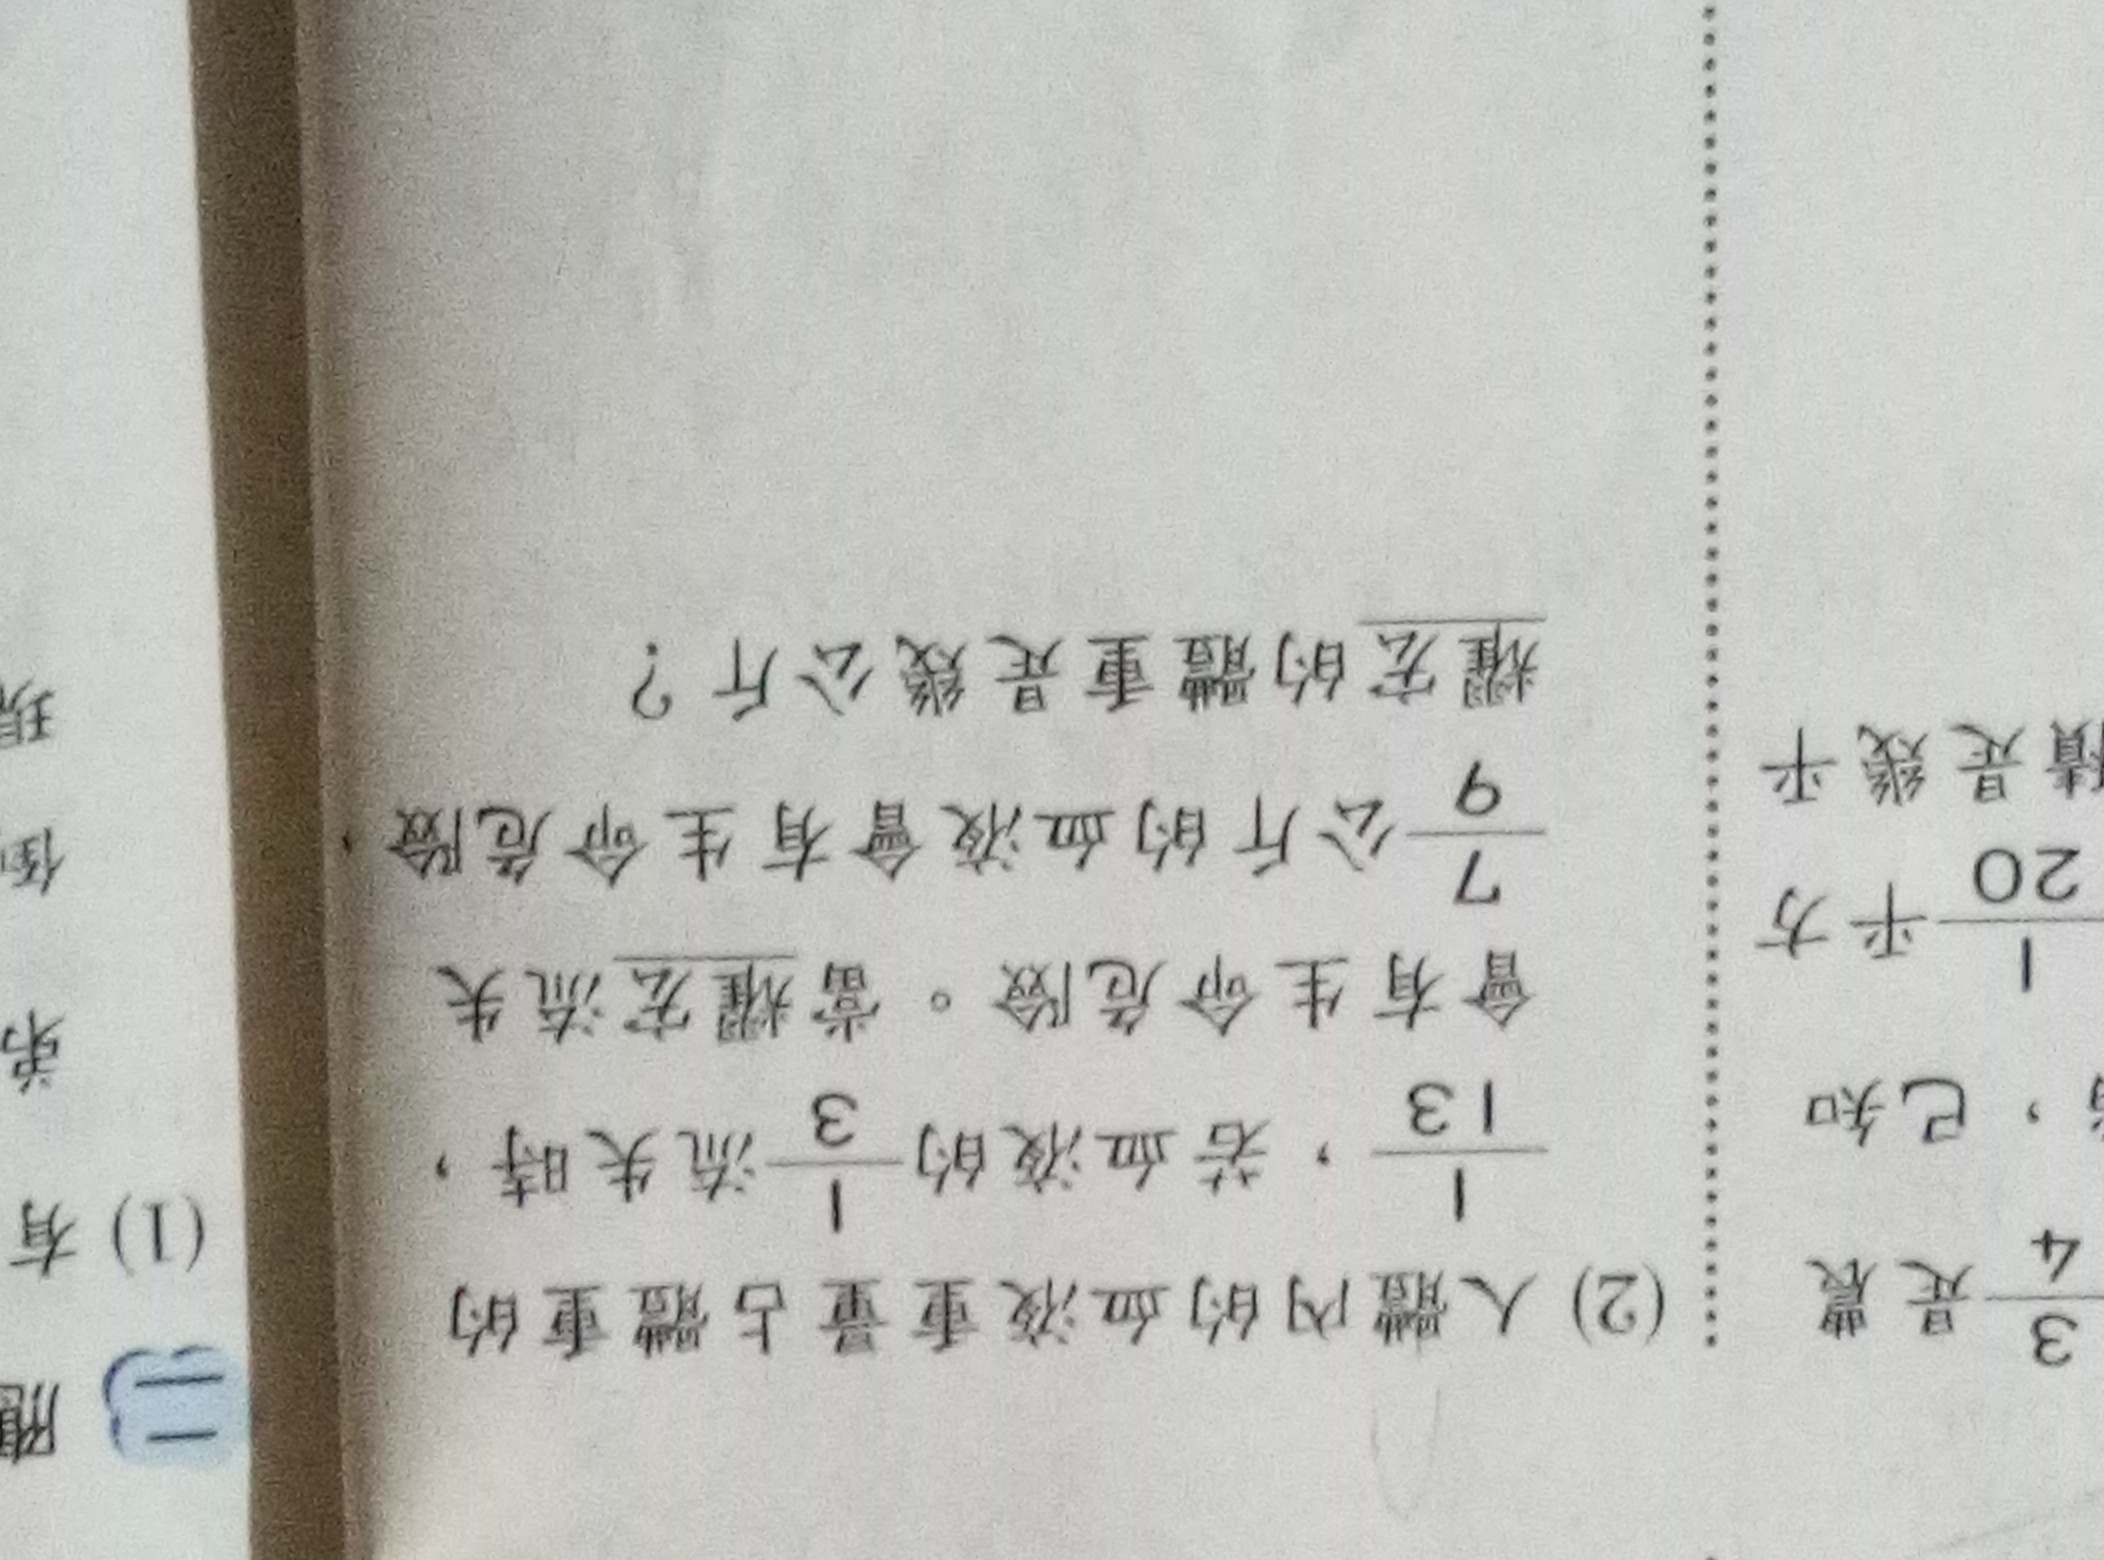 3/4是農
，已知
1/20平方
積是幾平
(2) 人體內的血液重量占體重的
1/13，若血液的1/3流失時，
會有生命危險。當耀宏流失
7/9公斤的血液會有生命危險，
耀宏的體重是幾公斤？
二
(1) 有
弟